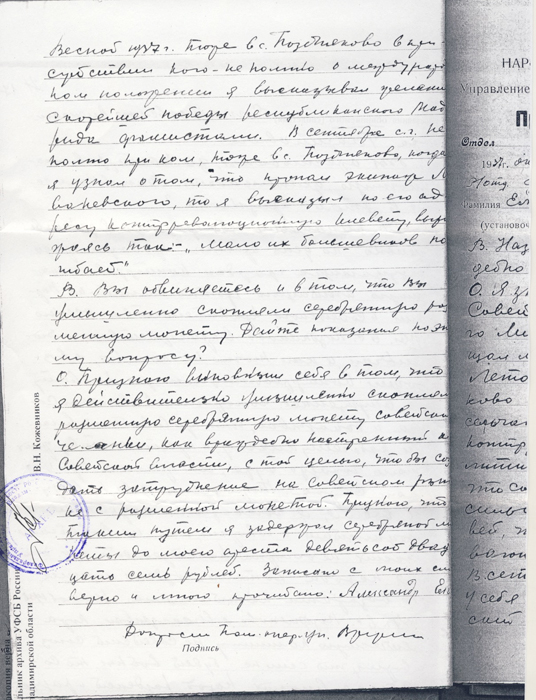 Весной 1937 г. тоже в с. Поздняково в при-
сутствии кого - не помню о международ
ном положении я высказывал желание
скорейшей победы республиканского Мад
рида фашистами. В сентябре с.г. не
помню при ком, тоже в с. Поздняково, когда
я узнал о том, что пропал экипаж Ле
ваневского, то я высказал по его ад
ресу контрреволюционную клевету, выра
жаясь так:- „Мало их большевиков по
гибает."
В. Вы обвиняетесь и в том, что Вы
умышленно скопляли серебряную раз
менную монету. Дайте показания по это
му вопросу?
О. Признаю виновным себя в том, что
я действительно умышленно скоплял
разменную серебряную монету советской
чеканки, как враждебно настроенный к
Советской власти, с той целью, что бы соз
дать затруднение на советском рын
ке с разменной монетой. Признаю, что
таким путем я задержал серебряной мо
неты до моего ареста девятьсот двад
цать семь рублей. Записано с моих слов
верно и мною прочитано: Александр
Допросил Пом. опер. уп.
Подпись
В.Н. Кожевников
архива УФСБ России
Владимирской области
НАР
Управление
П
Отдел
193
Фамилия
(установоч
В. Наз
дебно
О. Я
Совет
го
щал
Лето
ково
контр
что со
В сент
у себя
ский